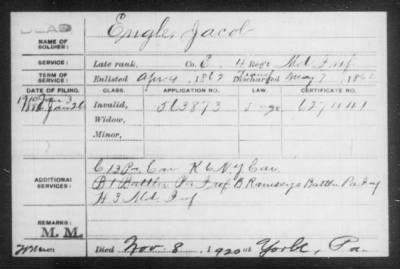 DEAD
Engler Jacob
NAME OF SOLDIER:
SERVICE: Late rank, Co. E, 4 Reg't Md. Inf
TERM OF SERVICE: Enlisted Apr 4, 1862 Discharged May 7, 1862
DATE OF FILING. CLASS. APPLICATION NO. LAW. CERTIFICATE NO.
Invalid, 563873
Widow,
Minor,
ADDITIONAL SERVICES:
E 13 Pa Cav K 6 N Y Cav
B 1 Battln Pa Inf B Ramseys Battln Pa Inf
H 3 Md Inf
REMARKS:
M. M.
Died Nov. 8, 1920 at York, Pa.